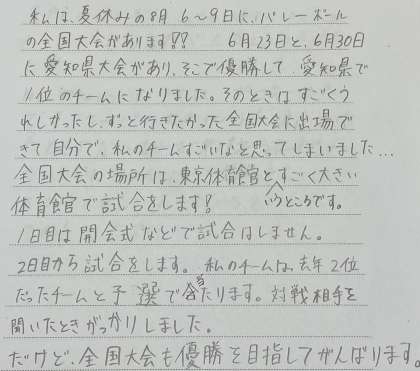 私は、夏休みの8月 6〜9日に、バレーボール
の全国大会があります!! 6月23日と、6月30日
に愛知県大会があり、そこで優勝して、愛知県で
1位のチームになりました。そのときはすごくう
れしかったし、ずっと行きたかった全国大会に出場で
きて自分で、私のチームすごいなと思ってしまいました…
全国大会の場所は、東京体育館とすごく大きい
体育館で試合をします! いうところです。
1日目は開会式などで試合はしません。
2日目から試合をします。私のチームは、去年2位
だったチームと予選で当たります。対戦相手を
聞いたときがっかりしました。
だけど、全国大会も優勝を目指してがんばります。